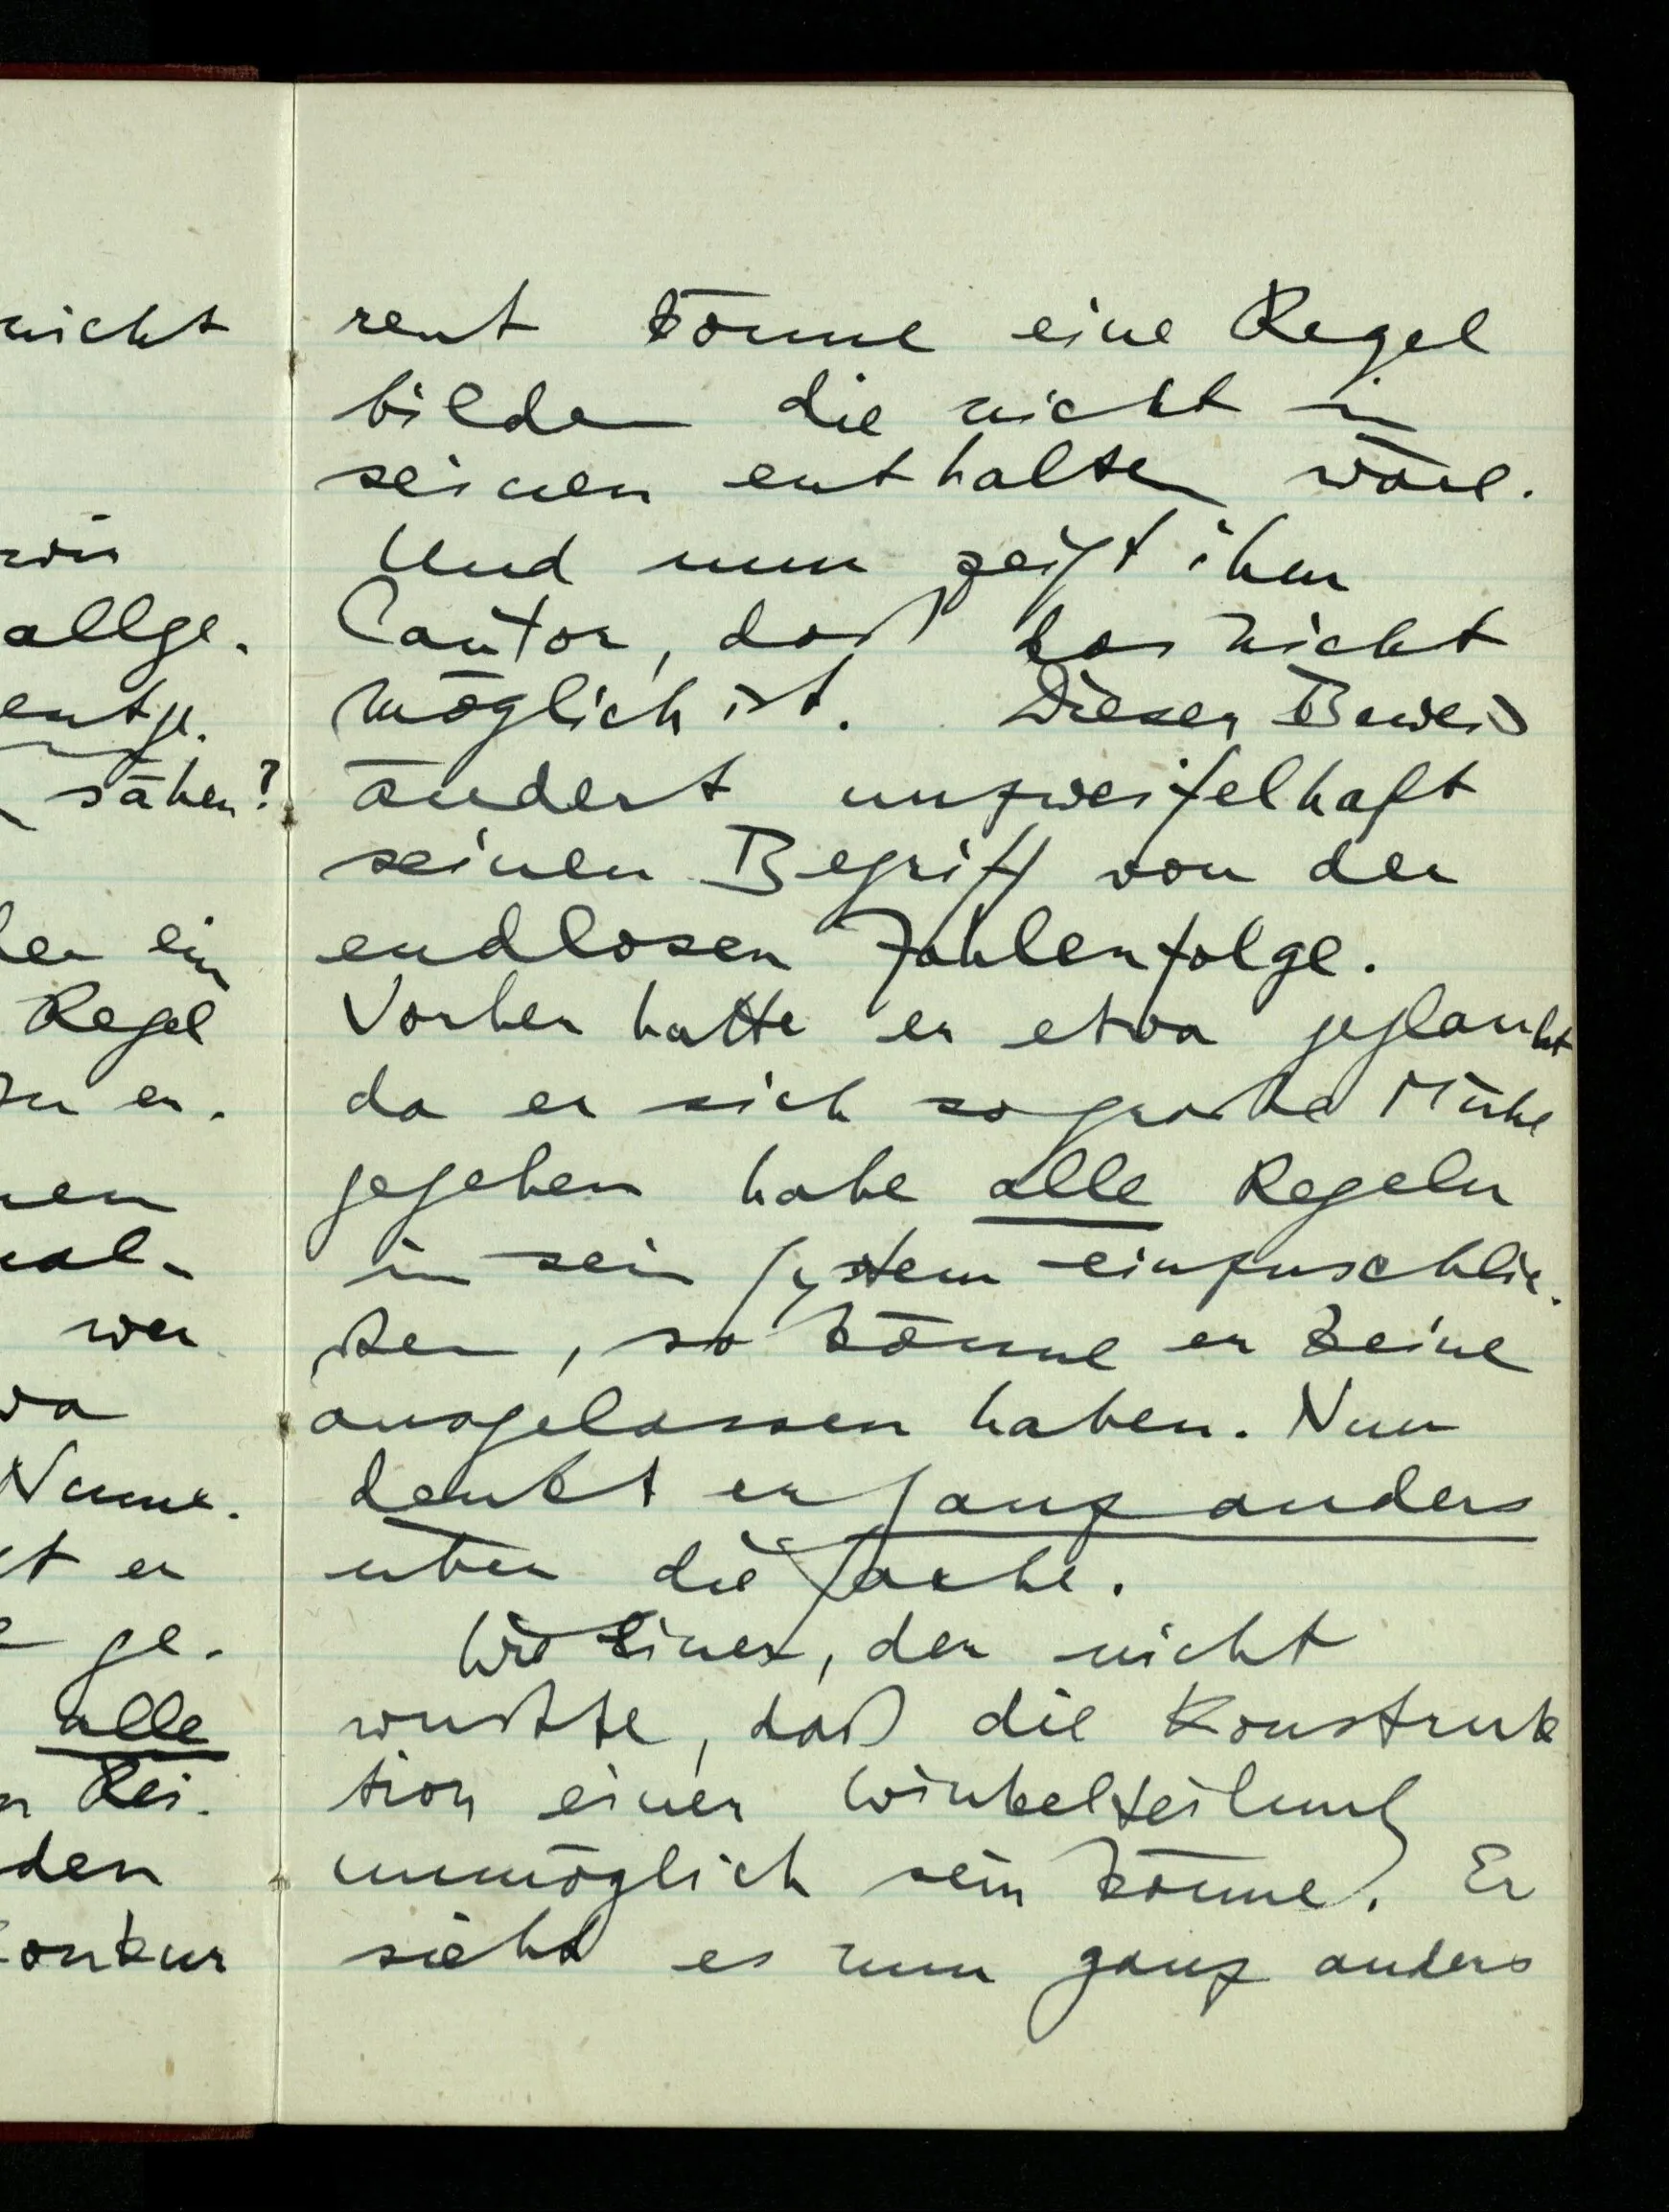 nicht
wir
allge-
entge-
sähen?
ein
Regel
zu er-
nen
wer
Numme-
er
ge-
alle
Rei-
den
onkur
rent könne eine Regel
bilden die nicht in
seinen enthalten wäre.
Und nun zeigt ihm
Cantor, daß das nicht
möglich ist. Dieser Beweis
ändert unzweifelhaft
seinen Begriff von der
endlosen Zahlenfolge.
Vorher hatte er etwa geglaubt
da er sich so große Mühe
gegeben habe alle Regeln
in sein System einzuschlie-
ßen, so könne er keine
ausgelassen haben. Nun
denkt er ganz anders
über die Sache.
Wie Einer, der nicht
wußte, daß die Konstruk
tion einer Winkelteilung
unmöglich sein könne. Er
sieht es nun ganz anders